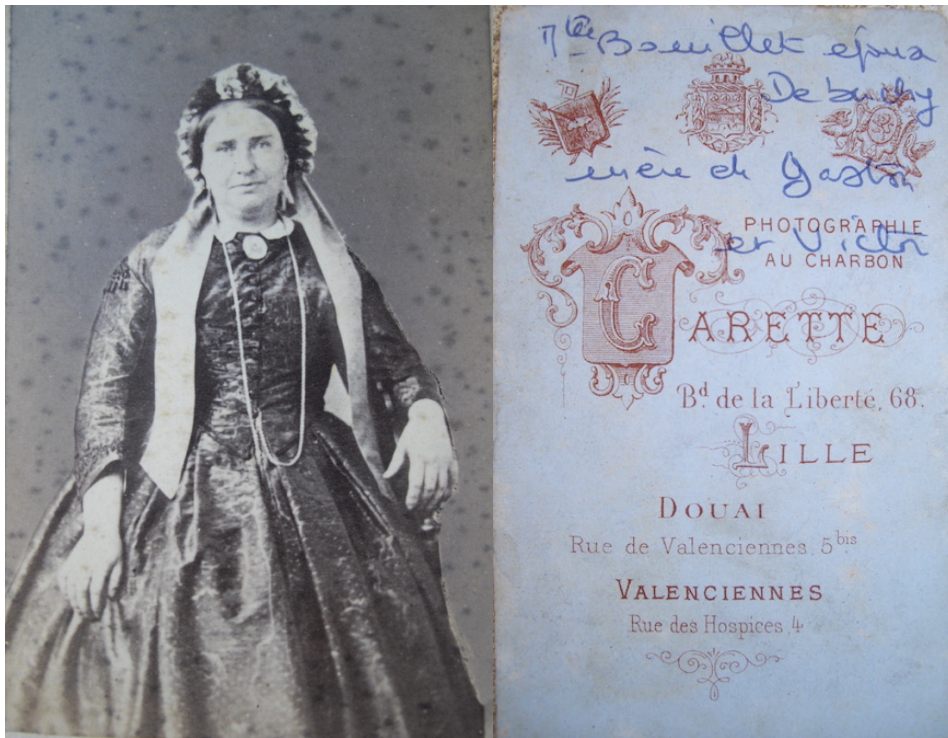 Mlle Bouillet épouse
Debuchy
mère de Gaston
et Victor
PHOTOGRAPHIE
AU CHARBON
CARETTE
Bd. de la Liberte, 68.
LILLE
DOUAI
Rue de Valenciennes 5bis
VALENCIENNES
Rue des Hospices, 4